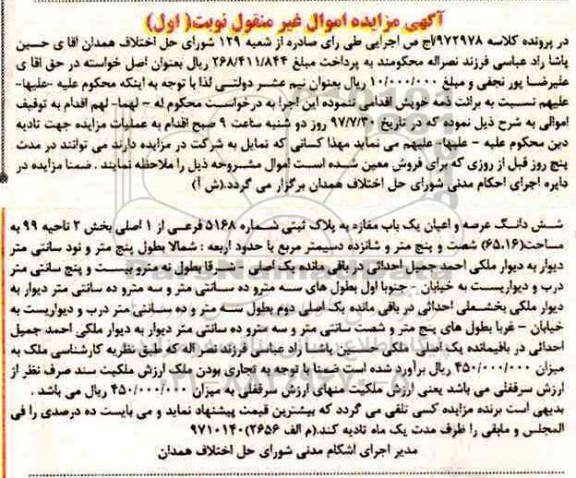 آگهی مزایده اموال غیر منقول نوبت( اول)
در پرونده کلاسه ۹۷۲۹۷۸/اج ص اجرایی طی رای صادره از شعبه ۱۲۹ شورای حل اختلاف همدان اقا ی حسین
پاشا راد عباسی فرزند نصراله محکومند به پرداخت مبلغ ۲۶۸/۴۱۱/۸۴۴ ریال بعنوان اصل خواسته در حق اقا ی
علیرضا پور نجفی و مبلغ ۱۰/۰۰۰/۰۰۰ ریال بعنوان نیم عشر دولتی لذا با توجه به اینکه محکوم علیه -علیها-
علیهم نسبت به برائت ذمه خویش اقدامی ننموده این اجرا به درخواست محکوم له – لهما- لهم اقدام به توقیف
اموالی به شرح ذیل نموده که در تاریخ ۹۷/۷/۳۰ روز دو شنبه ساعت ۹ صبح اقدام به عملیات مزایده جهت تادیه
دین محکوم علیه - علیها- علیهم می نماید مهذا کسانی که تمایل به شرکت در مزایده دارند می توانند در مدت
پنج روز قبل از روزی که برای فروش معین شده است اموال مشروحه ذیل را ملاحظه نمایند . ضمنا مزایده در
دایره اجرای احکام مدنی شورای حل اختلاف همدان برگزار می گردد.(ش آ)
شش دانگ عرصه و اعیان یک باب مغازه به پلاک ثبتی شماره ۵۱۶۸ فرعی از ۱ اصلی بخش ۲ ناحیه ۹۹ به
مساحت(۶۵.۱۶) شصت و پنج متر و شانزده دسیمتر مربع با حدود اربعه : شمالا بطول پنج متر و نود سانتی متر
دیوار به دیوار ملکی احمد جمیل احداثی در باقی مانده یک اصلی - شرقا بطول نه مترو بیست و پنج سانتی متر
درب و دیواریست به خیابان - جنوبا اول بطول های سه مترو ده سانتی متر و سه مترو ده سانتی متر دیوار به
دیوار ملکی بخشعلی احداثی در باقی مانده یک اصلی دوم بطول سه متر و ده سانتی متر درب و دیواریست به
خیابان - غربا بطول های پنج متر و شصت سانتی متر و سه مترو ده سانتی متر دیوار به دیوار ملکی احمد جمیل
احداثی در باقیمانده یک اصلی ملکی حسین پاشا راد عباسی فرزند نصراله که طبق نظریه کارشناسی ملک به
میزان ۴۵۰/۰۰۰/۰۰۰ ریال برآورد شده است ضمنا با توجه به تجاری بودن ملک ارزش ملکیت سند صرف نظر از
ارزش سرقفلی می باشد یعنی ارزش ملکیت منهای ارزش سرقفلی به میزان ۴۵۰/۰۰۰/۰۰۰ ریال می باشد .
بدیهی است برنده مزایده کسی تلقی می گردد که بیشترین قیمت پیشنهاد نماید و می بایست ده درصدی را فی
المجلس و مابقی را ظرف مدت یک ماه تادیه کند.(م الف ۲۶۵۶) ۹۷۱۰۱۴۰
مدیر اجرای اشکام مدنی شورای حل اختلاف همدان